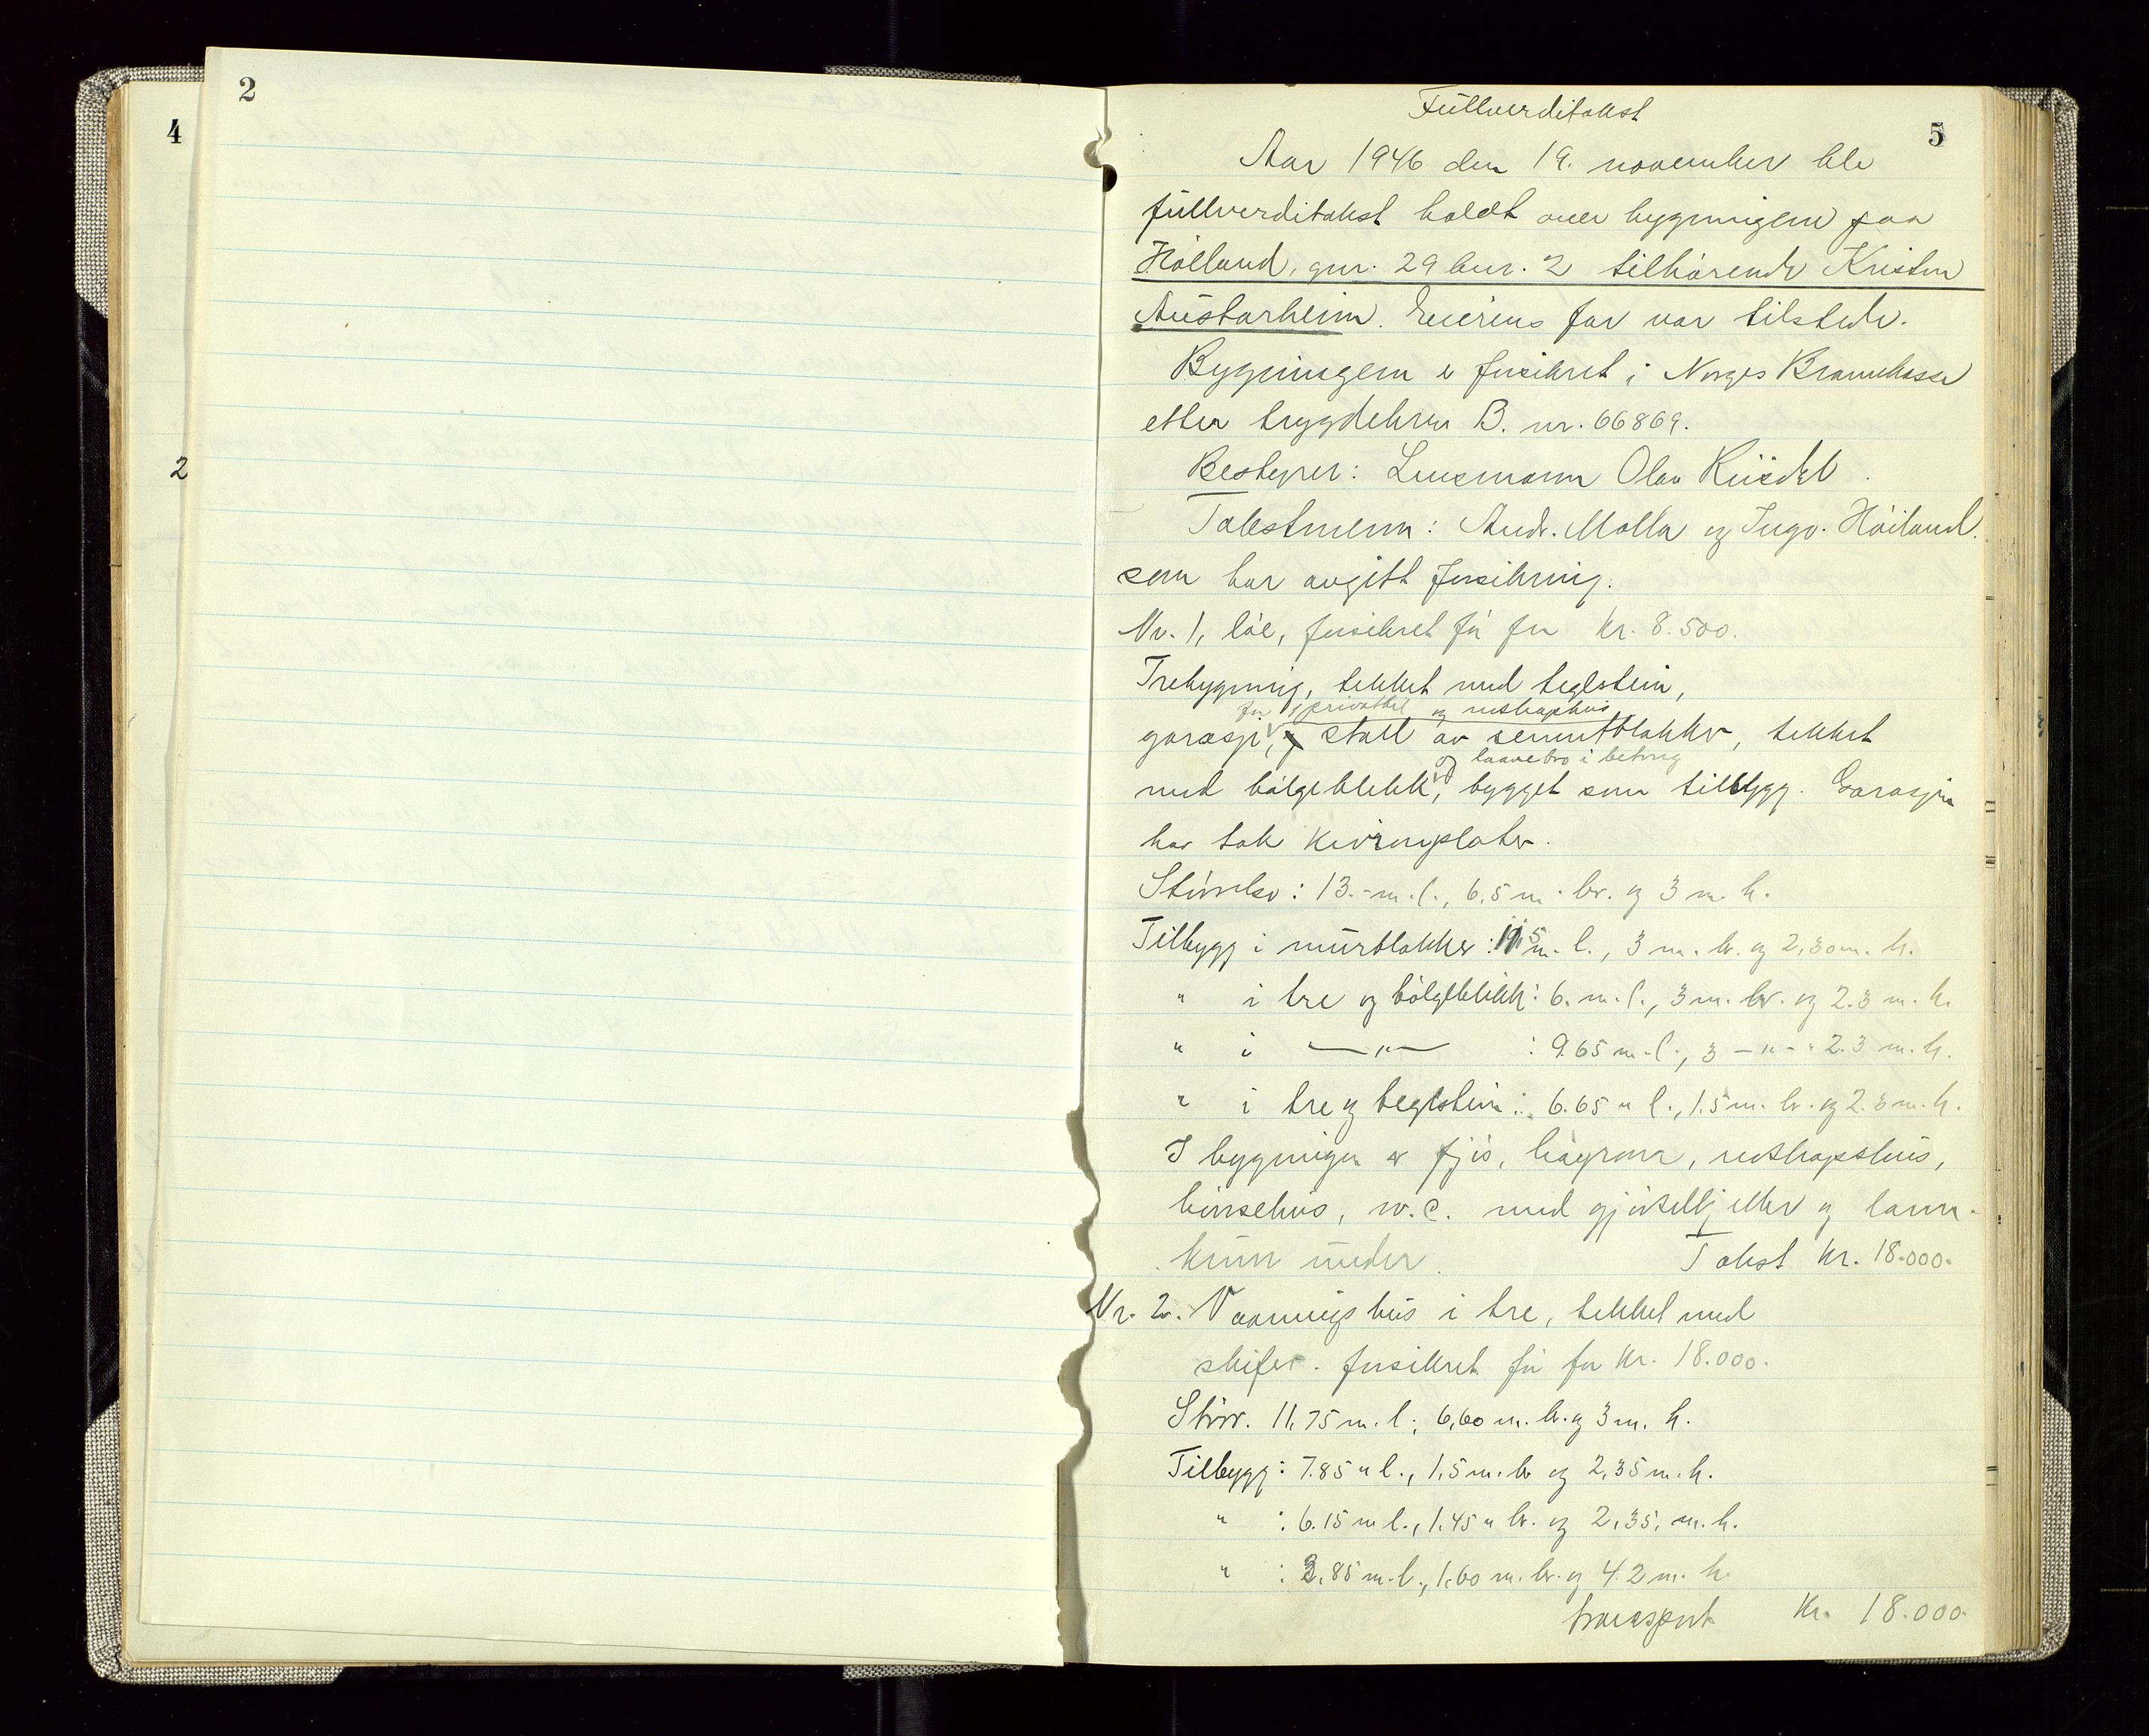 2
4
2
5
Fullverditakst
Aar 1946 den 19. november ble
fullverditakst holdt over bygningene paa
Høiland, gnr. 29 bnr. 2 tilhørende Kristen
Austarheim. Eierens far var tilstede.
Bygningene er forsikret i Norges Brannkasse
etter trygdebrev B. nr. 66869.
Bestyrer: Lensmann Olav
Takstmenn: Andr. Molla og Ingv. Høiland.
som har avgitt forsikring.
Nr. 1, løe, forsikret før for kr. 8.500.
Trebygning, tekket med teglstein,
for privatbil og redskaphus
garasje, stall av sementblokker, tekket
og laavebro i betong
med bølgeblekk, bygget som tilbygg. Garasjen
har tak av plater.
Størrelse: 13.- m. l., 6,5 m. br. og 3 m. h.
Tilbygg i murblokker: m. l., 3 m. br. og 2,30 m. h.
" i tre og bølgeblekk: 6. m. l., 3 m. br. og 2.3 m. h.
" i —"— : 9.65 m. l., 3 —"— 2.3 m. h.
" i tre og teglstein: 6.65 " l., 1.5 m. br. og 2.3 m. h.
I bygningen er fjøs, høyrom, redskapshus,
hønsehus, w.c. med gjødselkjeller og lann-
kum under. Takst kr. 18.000.
Nr. 2. Vaaningshus i tre, tekket med
skifer. forsikret før for kr. 18.000.
Størr. 11,75 m. l., 6,60 m. br. og 3 m. h.
Tilbygg: 7.85 " l., 1,5 m. br og 2,35 m. h.
" : 6.15 m l., 1.45 " br. og 2,35. m. h.
" : 3.85 m. l., 1.60 m. br. og 4.2 m. h.
transport kr. 18.000.